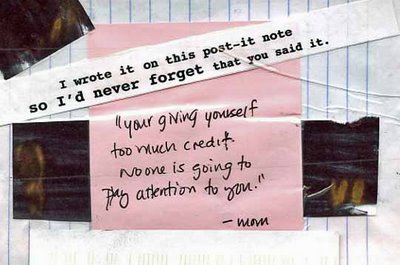 I wrote it on this post-it note
so I'd never forget that you said it.
"your giving yourself
too much credit.
No one is going to
pay attention to you."
- mom